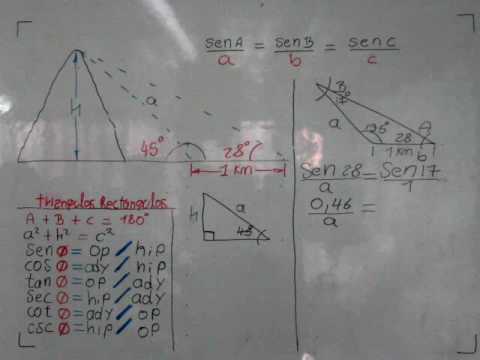 senA / a = senB / b = senC / c
H
a
45°
28°
1 Km
B
17°
a
135°
28
A
1 Km
b
Sen 28 / a = Sen 17 / 1
0,46 / a =
triangulos Rectangulos
A + B + c = 180°
a² + h² = c²
Sen Ø = op / hip
cos Ø = ady / hip
tan Ø = op / ady
sec Ø = hip / ady
cot Ø = ady / op
csc Ø = hip / op
h
a
45